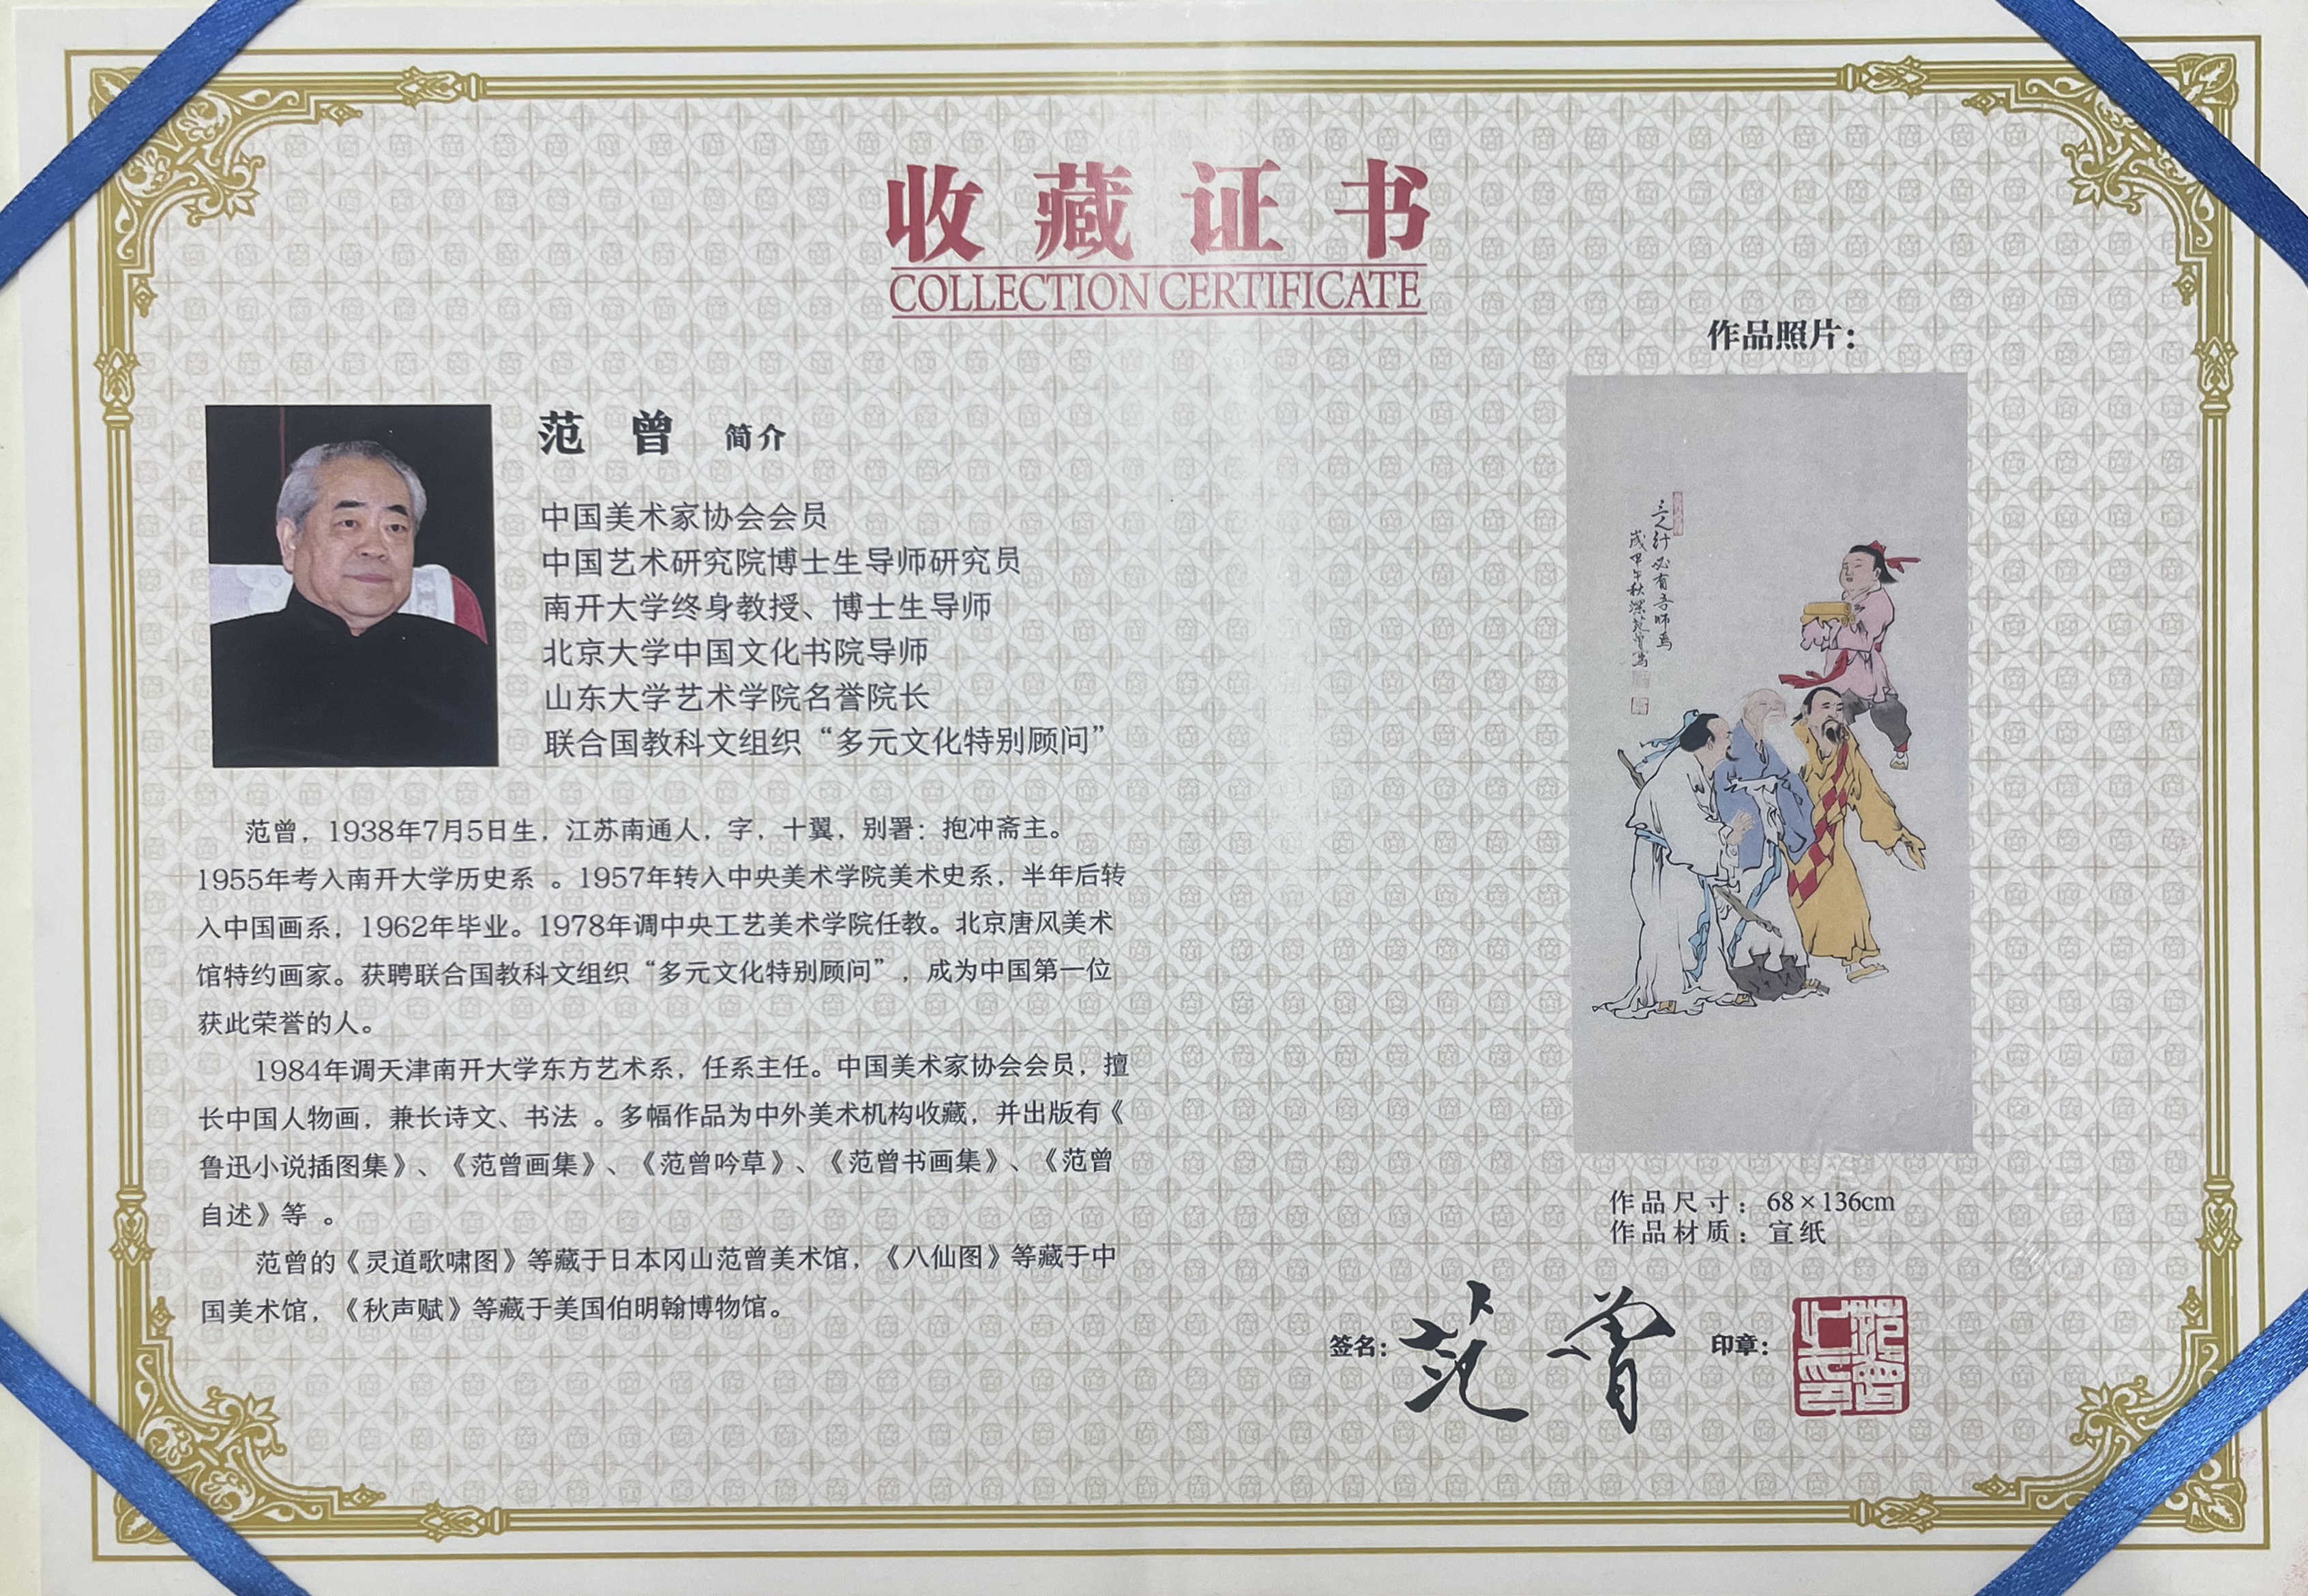 收藏证书
COLLECTION CERTIFICATE
范 曾 简介
中国美术家协会会员
中国艺术研究院博士生导师研究员
南开大学终身教授、博士生导师
北京大学中国文化书院导师
山东大学艺术学院名誉院长
联合国教科文组织“多元文化特别顾问”
范曾，1938年7月5日生，江苏南通人，字，十翼，别署：抱冲斋主。
1955年考入南开大学历史系 。1957年转入中央美术学院美术史系，半年后转
入中国画系，1962年毕业。1978年调中央工艺美术学院任教。北京唐风美术
馆特约画家。获聘联合国教科文组织“多元文化特别顾问”，成为中国第一位
获此荣誉的人。
1984年调天津南开大学东方艺术系，任系主任。中国美术家协会会员，擅
长中国人物画，兼长诗文、书法 。多幅作品为中外美术机构收藏，并出版有《
鲁迅小说插图集》、《范曾画集》、《范曾吟草》、《范曾书画集》、《范曾
自述》等 。
范曾的《灵道歌啸图》等藏于日本冈山范曾美术馆，《八仙图》等藏于中
国美术馆，《秋声赋》等藏于美国伯明翰博物馆。
作品照片：
三人行必有吾师焉
岁甲午秋深范曾写
作品尺寸：68×136cm
作品材质：宣纸
签名：范曾
印章：